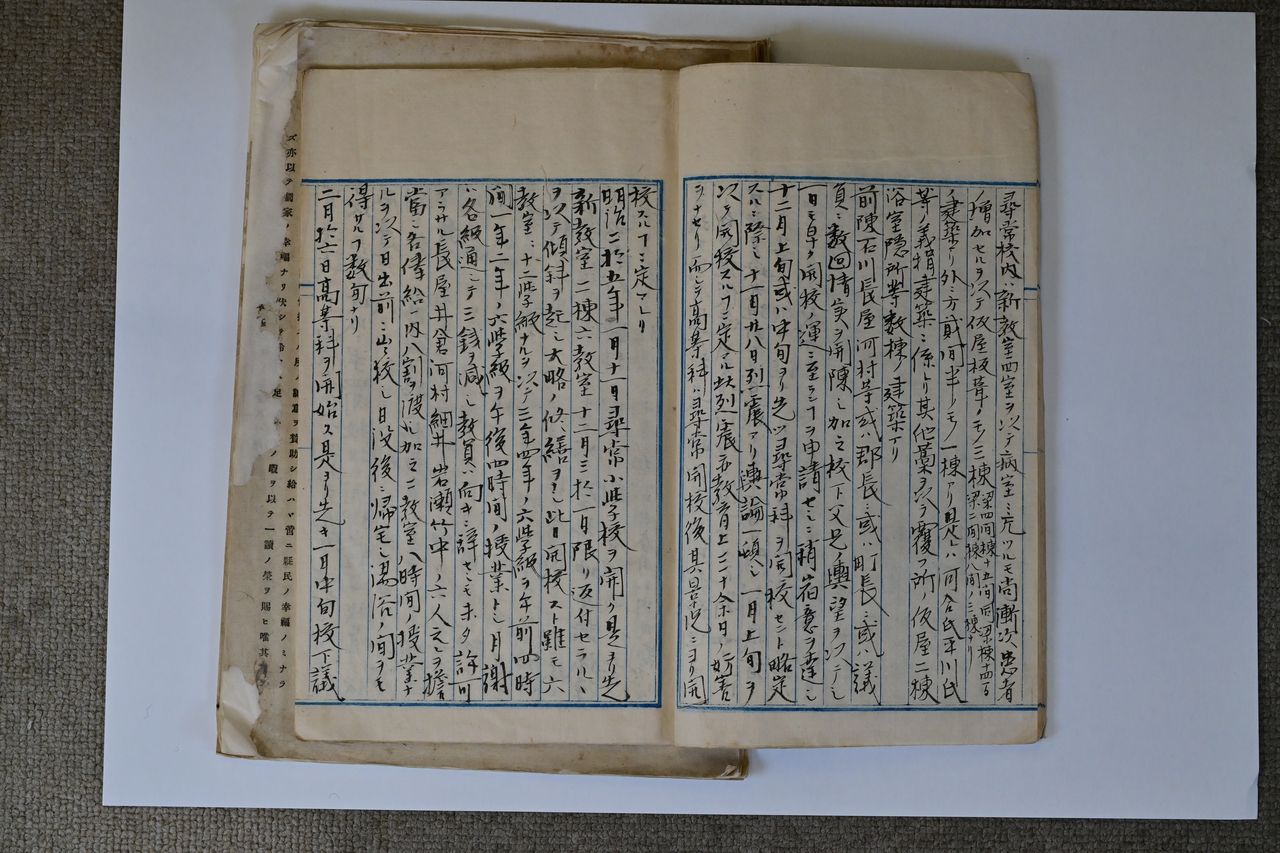 尋常校内ハ新教室四室ヲ以テ病室ニ充ツルモ尚漸次患者
増加セルヲ以テ仮屋板葺ノモノ三棟
梁四間棟十五間 同梁棟十四間
梁二間棟八間ノ三棟ナリ
建築ナリ外方貳間半ノモノ一棟アリ是ハ河合氏平川氏
等ノ義捐建築ニ係トリ其他藁ヲ以テ覆フ所ノ仮屋二棟
浴室隠所等数棟ノ建築アリ
前陳石川長屋河村等或ハ郡長ニ或ハ町長ニ或ハ議
員ニ数回情実ヲ開陳シ加之校下父兄ノ輿望ヲ以テシ
一日モ早ク開校ノ運ニ至ランコヲ申請セシニ稍宿意ヲ達シ
十二月上旬或ハ中旬ヨリ先ツヨ尋常科ヲ開校セント略定
スルニ際シ十一月廿八日烈震アリ輿論一傾シ一月上旬ヲ
以テ開校スルコニ定マル此烈震亦教育上二十余日ノ妨害
ヲナセリ而シテ高等科ハ尋常開校後其景況ニヨリ開
校スルコニ定マレリ
明治二拾五年一月十一日尋常小学校ヲ開ク是ヨリ先
新教室二棟六教室十二月三拾一日限リ返付セラルヽ
ヲ以テ傾斜ヲ起シ大略ノ修繕ヲシ此日開校スト雖モ六
教室ニ十二学級ナルヲ以テ三年四年ノ六学級ヲ午前四時
間一年二年ノ六学級ヲ午後四時間ノ授業トシ月謝
ハ各級通シテ三銭ヲ減シ教員ハ向キニ辞セシモ未タ許可
アラサル長屋井倉河村細井岩瀬竹中ノ六人之ヲ擔
當シ各俸給ノ内八割ヲ渡ス加之一教室八時間ノ授業ナ
ルヲ以テ日出前ニ出校シ日没後ニ帰宅シ湯浴ノ間ヲモ
得サルコ数旬ナリ
二月拾六日高等科ヲ開始ス是ヨリ先キ一月中旬校下議
ズ亦以テ國家ノ幸福ナリ
ヲ贊助シ給ハヾ啻ニ縣民ノ幸福ノミナラ
ノ暇ヲ以テ一讀ノ榮ヲ賜ヒ